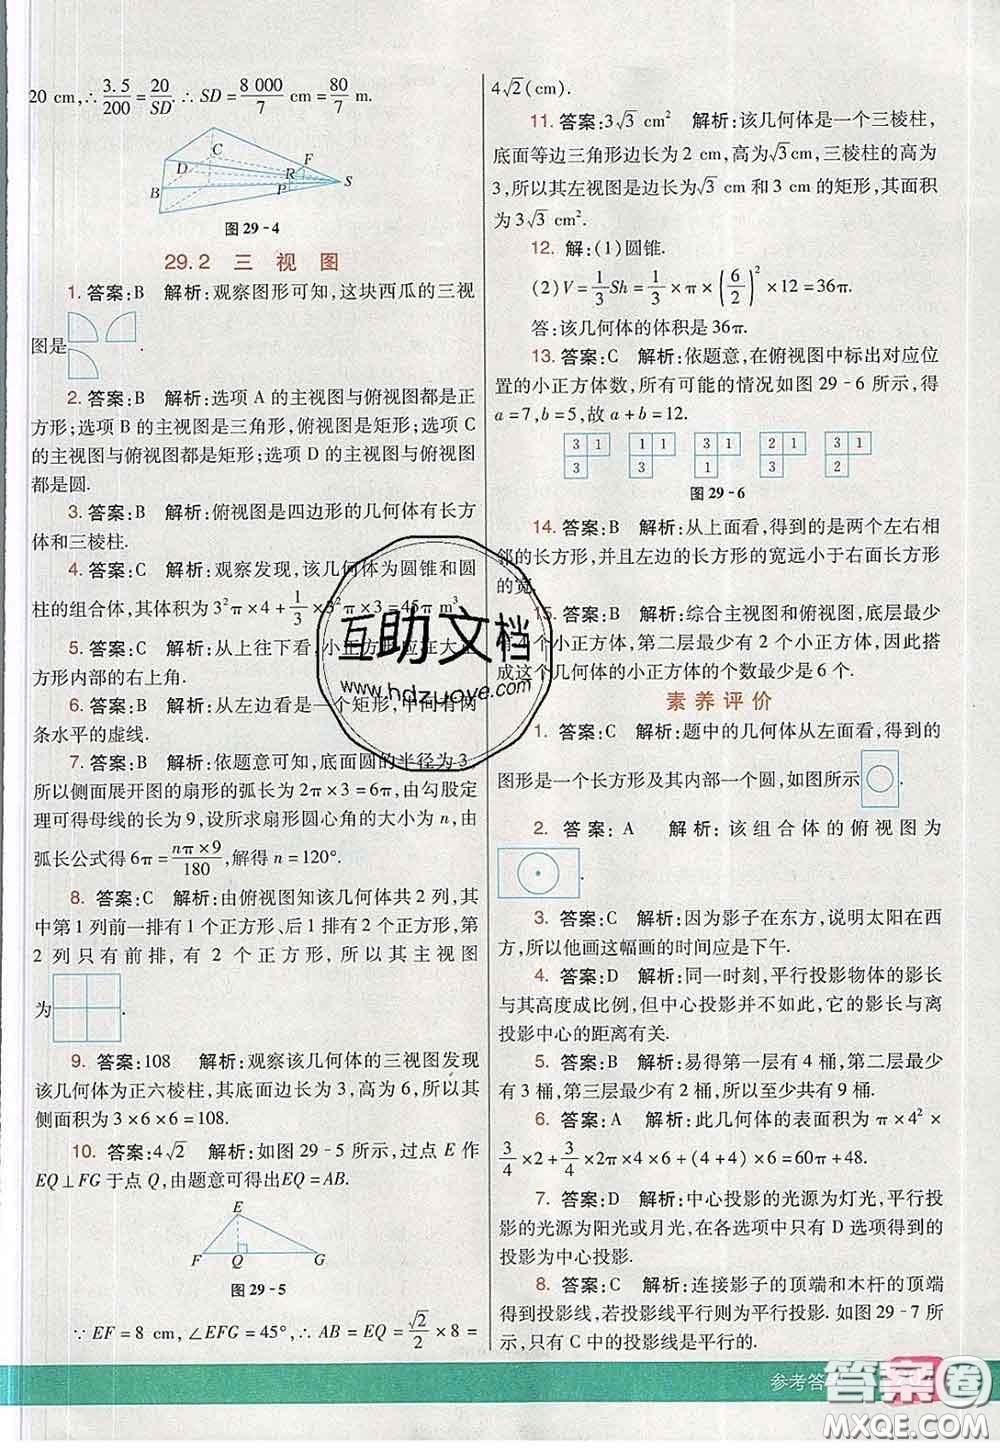 20 cm,∴3.5/200=20/SD.∴SD=8 000/7 cm=80/7 m.
C
F
D
R
B
P
S
图29-4
29.2 三视图
1. 答案:B 解析:观察图形可知,这块西瓜的三视
图是.
2. 答案:B 解析:选项A的主视图与俯视图都是正
方形;选项B的主视图是三角形,俯视图是矩形;选项C
的主视图与俯视图都是矩形;选项D的主视图与俯视图
都是圆.
3. 答案:B 解析:俯视图是四边形的几何体有长方
体和三棱柱.
4. 答案:C 解析:观察发现,该几何体为圆锥和圆
柱的组合体,其体积为3²π×4+1/3×3²π×3=45π m³.
5. 答案:C 解析:从上往下看,小正方形应在大正
方形内部的右上角.
6. 答案:B 解析:从左边看是一个矩形,中间有两
条水平的虚线.
7. 答案:B 解析:依题意可知,底面圆的半径为3,
所以侧面展开图的扇形的弧长为2π×3=6π,由勾股定
理可得母线的长为9,设所求扇形圆心角的度数为n,由
弧长公式得6π=nπ×9/180,解得n=120°.
8. 答案:C 解析:由俯视图知该几何体共2列,其
中第1列前一排有1个正方形、后1排有2个正方形,第
2列只有前排,有2个正方形,所以其主视图
为.
9. 答案:108 解析:观察该几何体的三视图发现
该几何体为正六棱柱,其底面边长为3,高为6,所以其
侧面积为3×6×6=108.
10. 答案:4√2 解析:如图29-5所示,过点E作
EQ⊥FG于点Q,由题意可得出EQ=AB.
E
F Q G
图29-5
∵EF=8 cm,∠EFG=45°,∴AB=EQ=√2/2×8=
4√2(cm).
11. 答案:3√3 cm² 解析:该几何体是一个三棱柱,
底面等边三角形边长为2 cm,高为√3 cm,三棱柱的高为
3,所以其左视图是边长为√3 cm和3 cm的矩形,其面积
为3√3 cm².
12. 解:(1)圆锥.
(2)V=1/3Sh=1/3×π×(6/2)²×12=36π.
答:该几何体的体积是36π.
13. 答案:C 解析:依题意,在俯视图中标出对应位
置的小正方体数,所有可能的情况如图29-6所示,得
a=7,b=5,故a+b=12.
3 1 1 1 3 1 2 1 3 1
3 3 1 3 2
图29-6
14. 答案:B 解析:从上面看,得到的是两个左右相
邻的长方形,并且左边的长方形的宽远小于右面长方形
的宽.
15. 答案:B 解析:综合主视图和俯视图,底层最少
有4个小正方体,第二层最少有2个小正方体,因此搭
成这个几何体的小正方体的个数最少是6个.
素养评价
1. 答案:C 解析:题中的几何体从左面看,得到的
图形是一个长方形及其内部一个圆,如图所示.
2. 答案:A 解析:该组合体的俯视图为
.
3. 答案:C 解析:因为影子在东方,说明太阳在西
方,所以他画这幅画的时间应是下午.
4. 答案:D 解析:同一时刻,平行投影物体的影长
与其高度成比例,但中心投影并不如此,它的影长与离
投影中心的距离有关.
5. 答案:B 解析:易得第一层有4桶,第二层最少
有3桶,第三层最少有2桶,所以至少共有9桶.
6. 答案:A 解析:此几何体的表面积为π×4²×
3/4×2+3/4×2π×4×6+4×6+4×6=60π+48.
7. 答案:D 解析:中心投影的光源为灯光,平行投
影的光源为阳光或月光,在各选项中只有D选项得到的
投影为中心投影.
8. 答案:C 解析:连接影子的顶端和木杆的顶端
得到投影线,若投影线平行则为平行投影.如图29-7所
示,只有C中的投影线是平行的.
互助文档
www.hdzuoye.com
参考答
答案圈
MXQE.COM